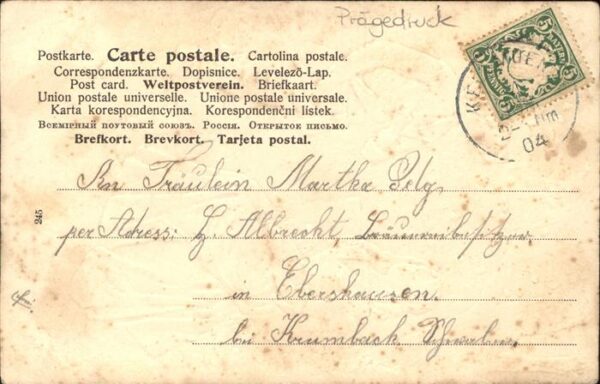 Prägedruck
Postkarte. Carte postale. Cartolina postale.
Correspondenzkarte. Dopisnice. Levelező-Lap.
Post card. Weltpostverein. Briefkaart.
Union postale universelle. Unione postale universale.
Karta korespondencyjna. Korespondenční lístek.
Всемірный почтовый союзъ. Россія. Открытое письмо.
Brefkort. Brevkort. Tarjeta postal.
5 5
04
An Fräulein Martha Pelg
per Adress: H. Albrecht,
in Ebershausen.
bei Krumbach Schwaben.
245